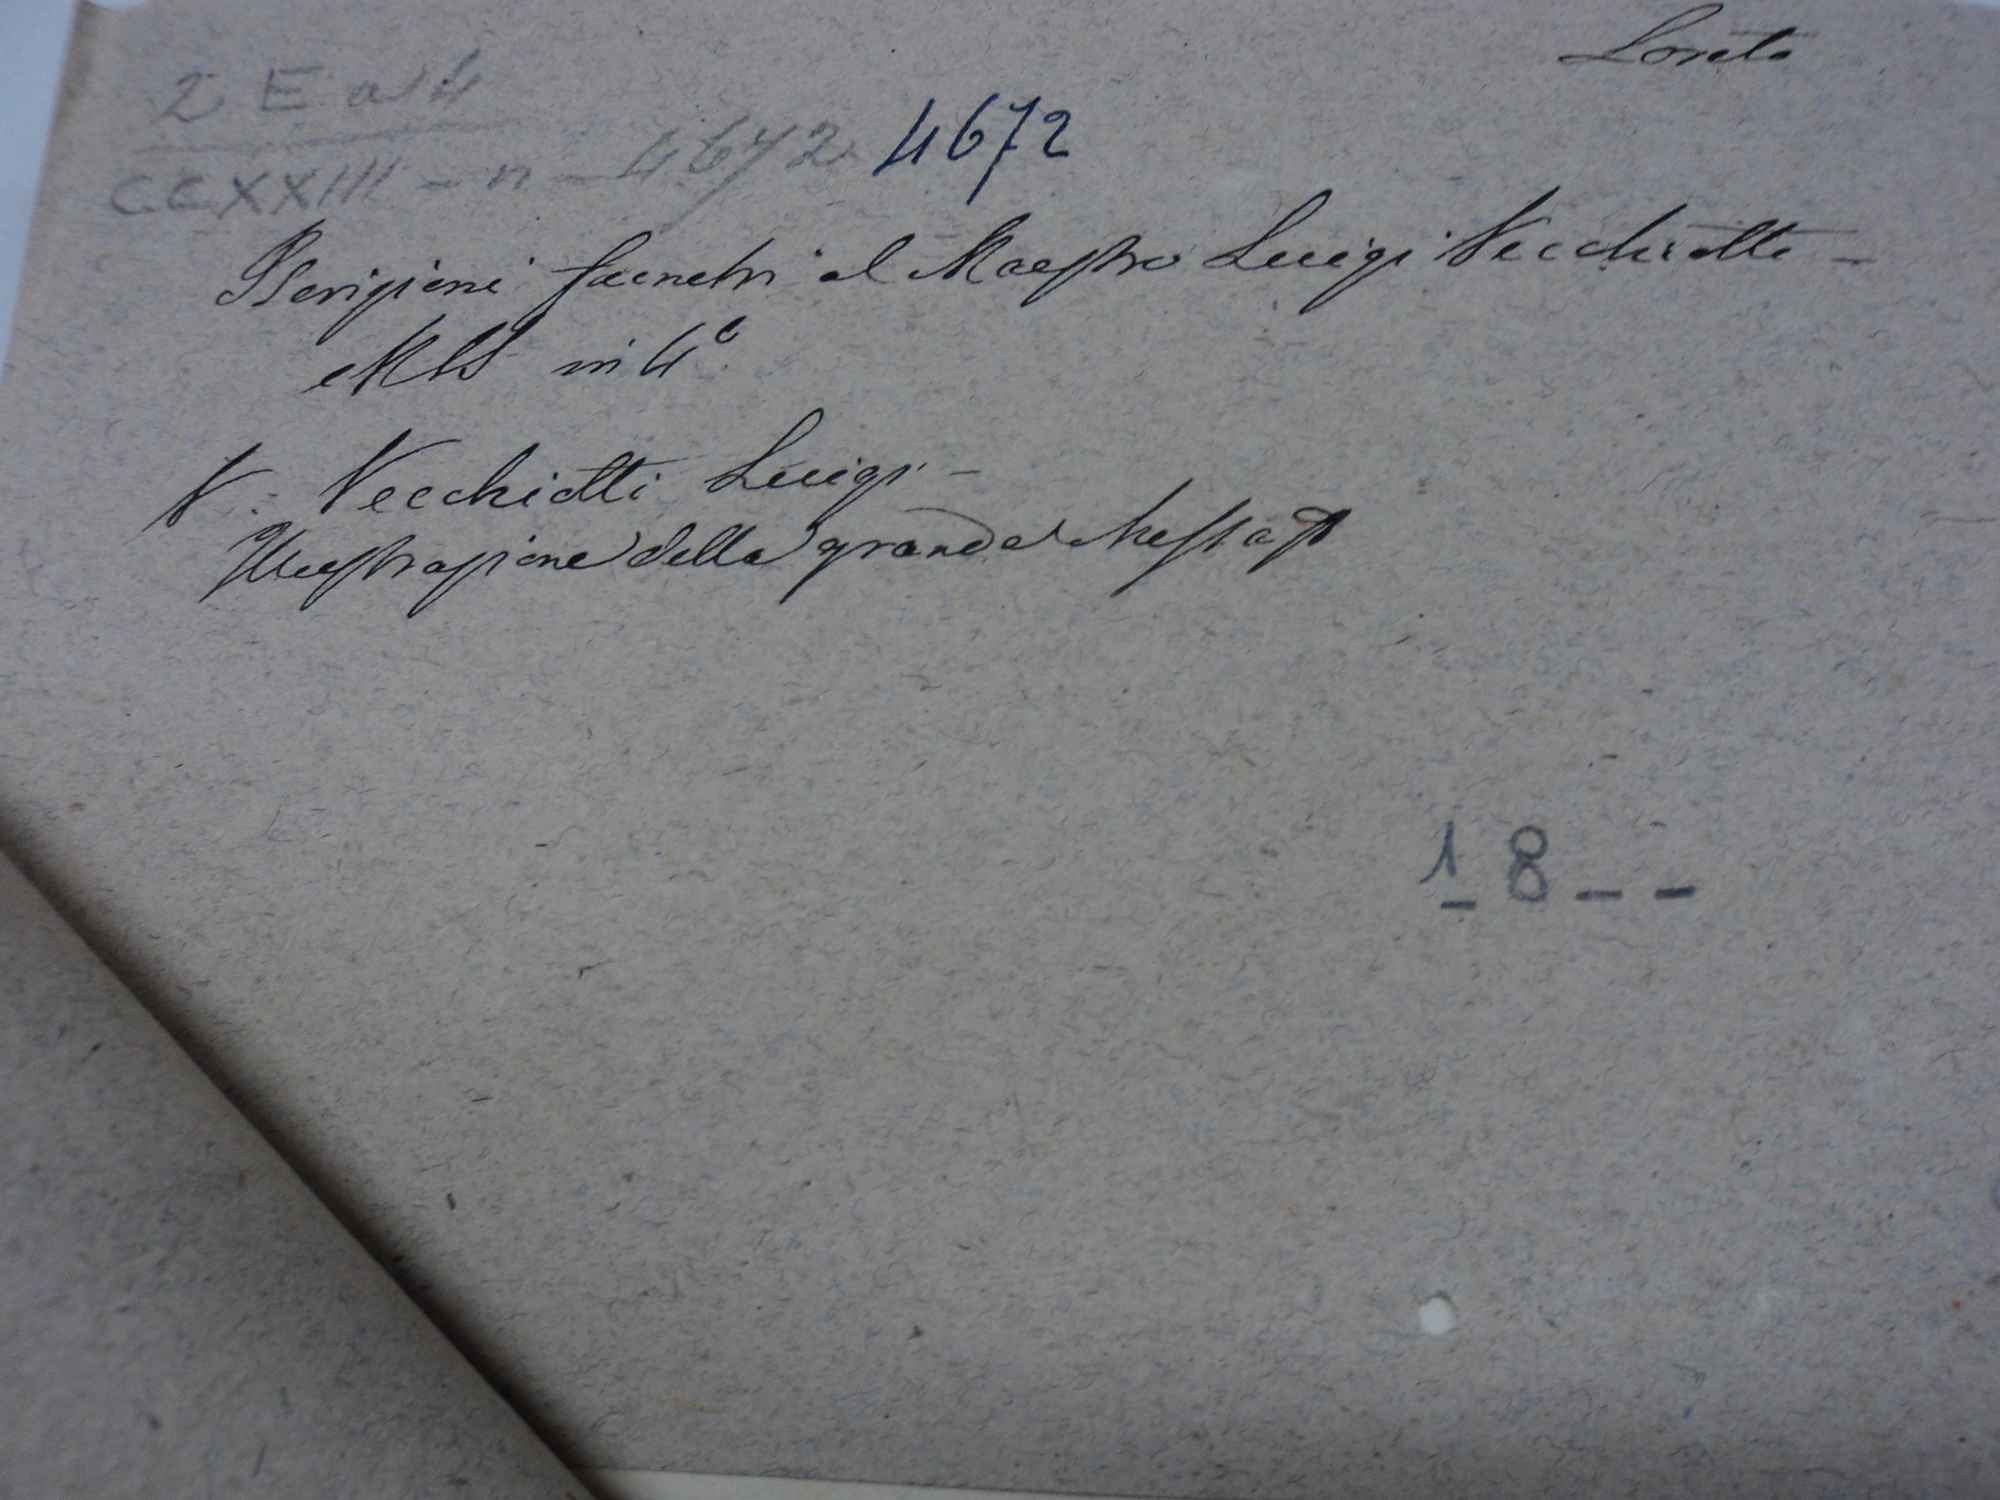 Loreto
2 E a/4
CCXXIII - n - 4672 4672
Iscrizioni funebri al Maestro Luigi Vecchiotti -
MSS in 4°
V. Vecchiotti Luigi -
Illustrazione della grande Messa
18--